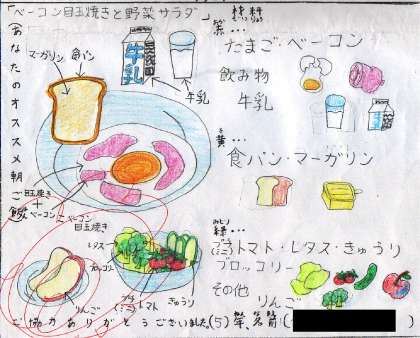 「ベーコン目玉焼きと野菜サラダ」
(あなたのオススメ朝ご飯)
マーガリン
食パン
牛乳
牛乳
目玉焼き
+
ベーコン
ベーコン
目玉焼き
レタス
ブロッコリー
プチ(ミニ)トマト
きゅうり
りんご
材料
赤…
たまご・ベーコン
飲み物
牛乳
黄…
食パン・マーガリン
みどり
緑…
プチ(ミニ)トマト・レタス・きゅうり
ブロッコリー
その他
りんご
ご協力ありがとうございました。(5)